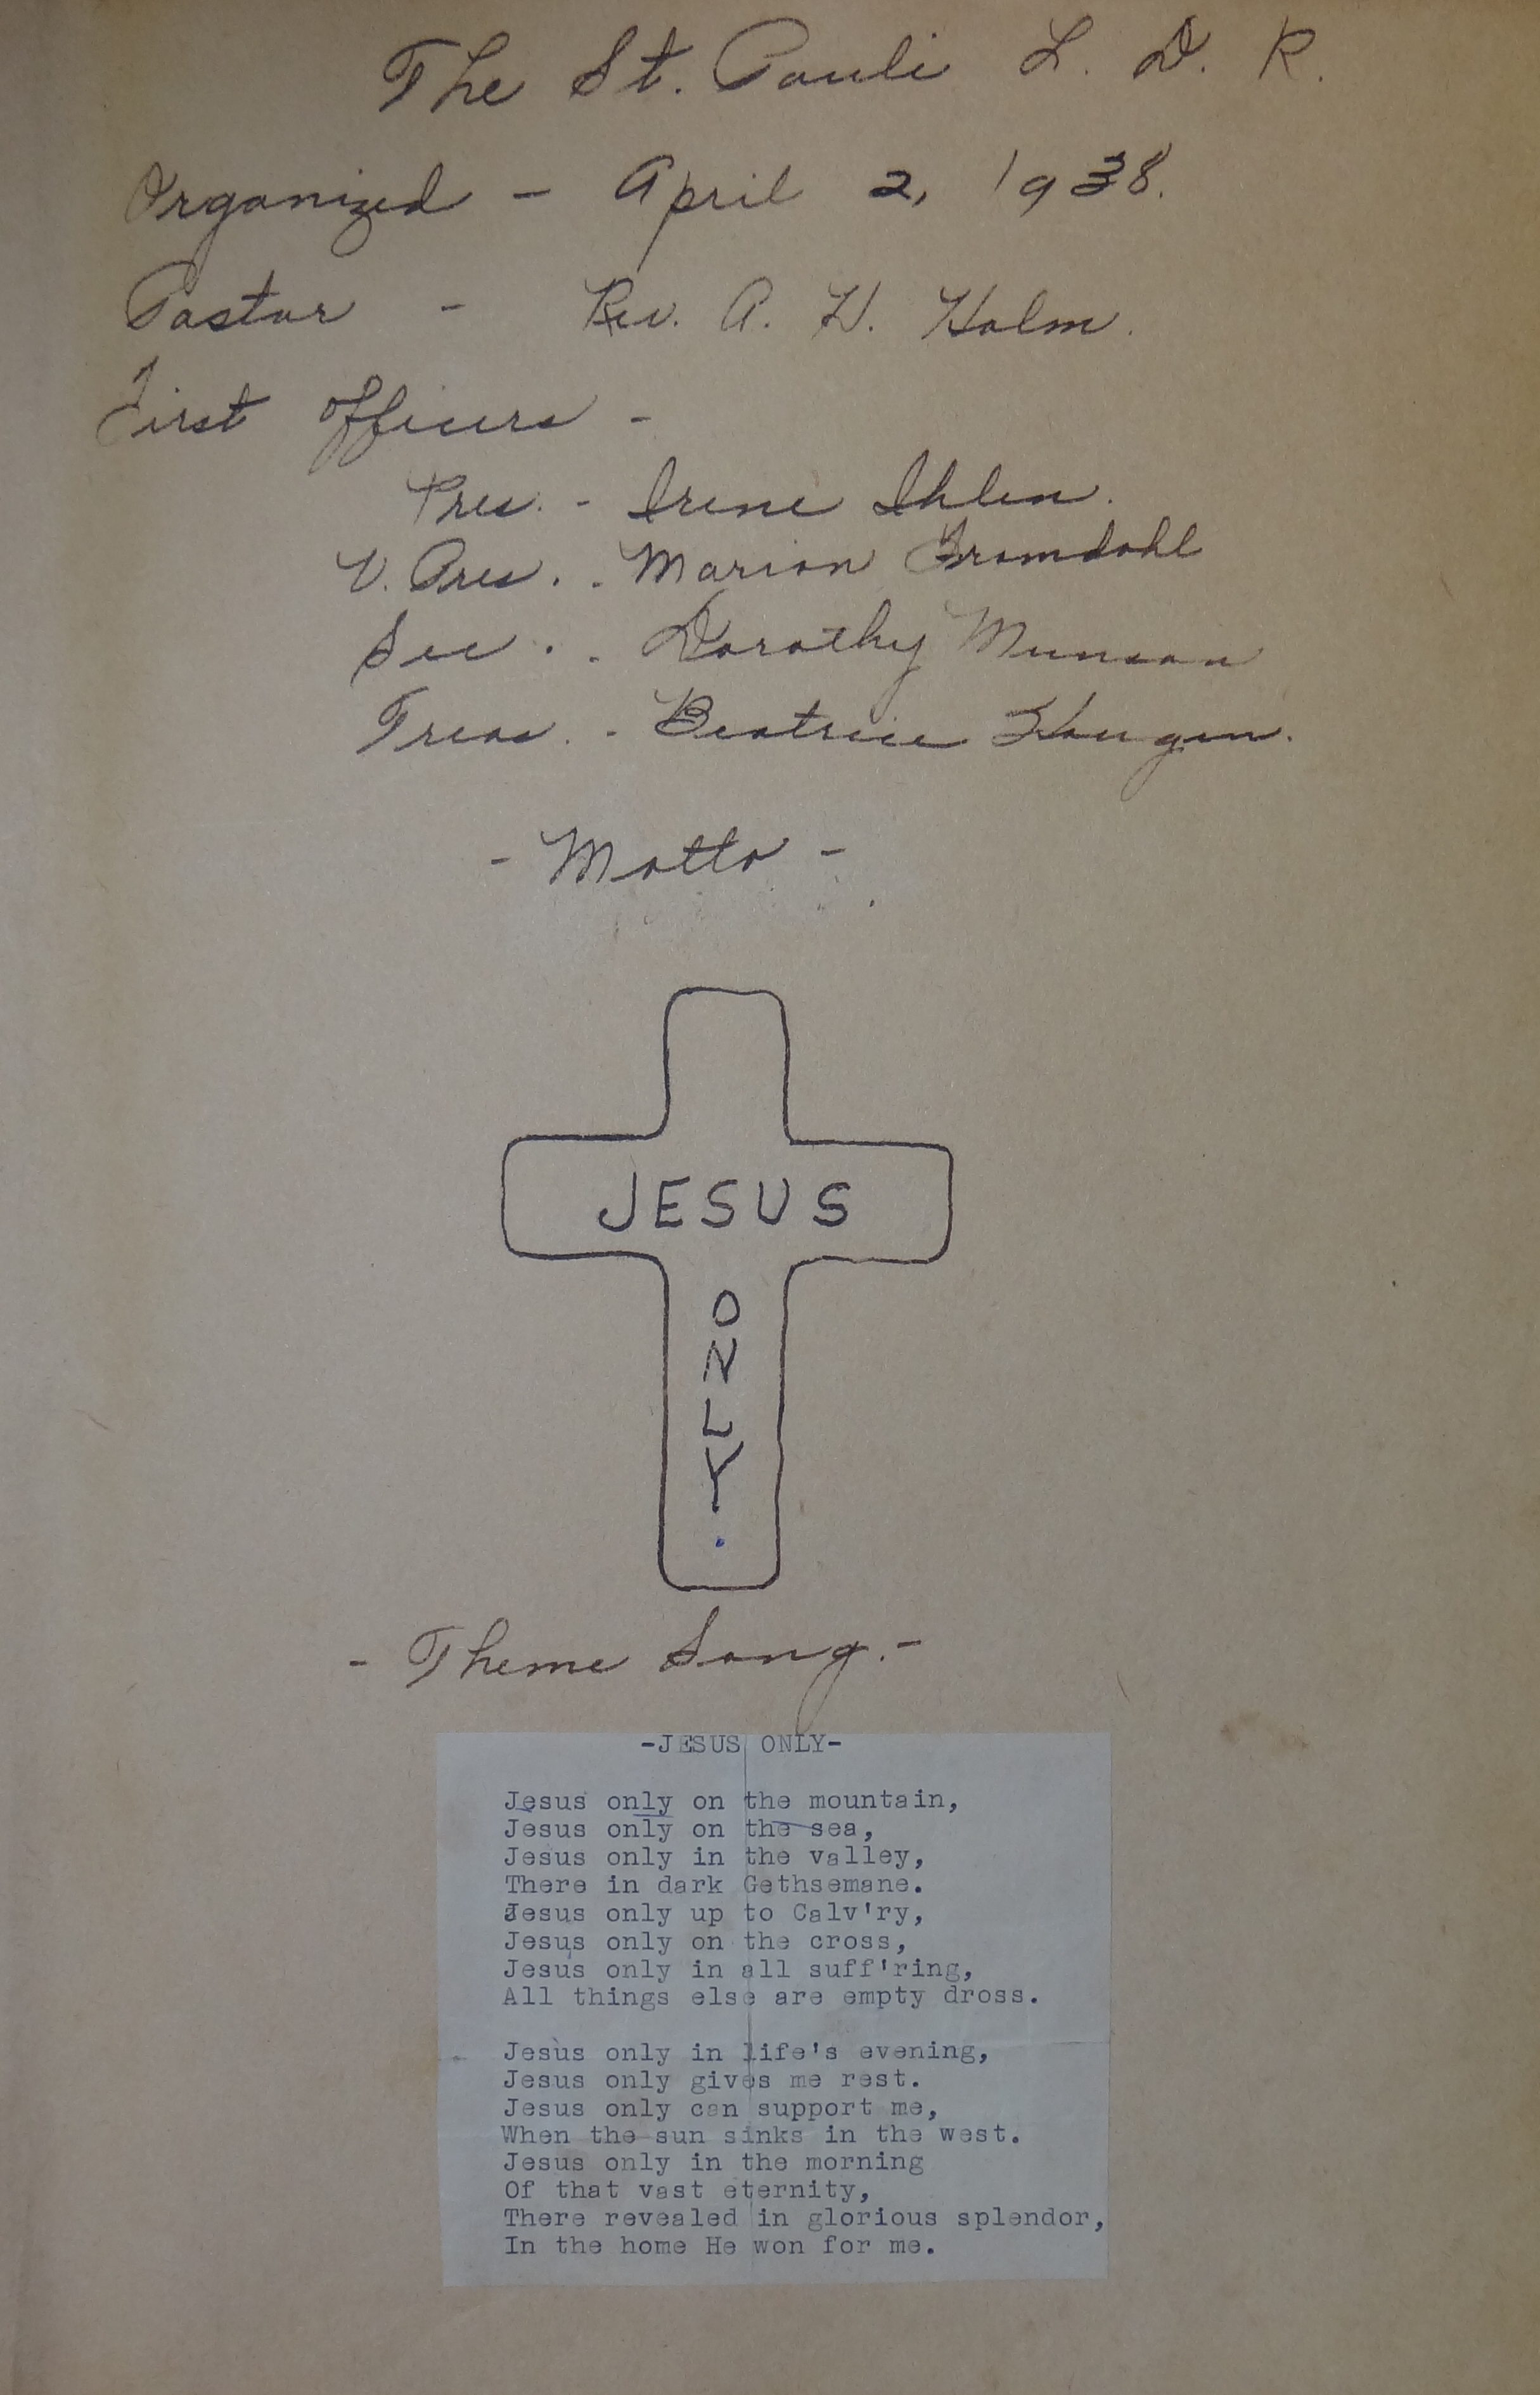 The St. Pauli L. D. R.
Organized - April 2, 1938.
Pastor - Rev. A. H. Holm.
First Officers -
Pres. - Irene Ihlen.
V. Pres. - Marion Fromdahl
Sec. - Dorothy Munson
Treas. - Beatrice Haugen.
- Motto -
JESUS
O
N
L
Y.
- Theme Song. -
-JESUS ONLY-
Jesus only on the mountain,
Jesus only on the sea,
Jesus only in the valley,
There in dark Gethsemane.
Jesus only up to Calv'ry,
Jesus only on the cross,
Jesus only in all suff'ring,
All things else are empty dross.
Jesus only in life's evening,
Jesus only gives me rest.
Jesus only can support me,
When the sun sinks in the west.
Jesus only in the morning
Of that vast eternity,
There revealed in glorious splendor,
In the home He won for me.